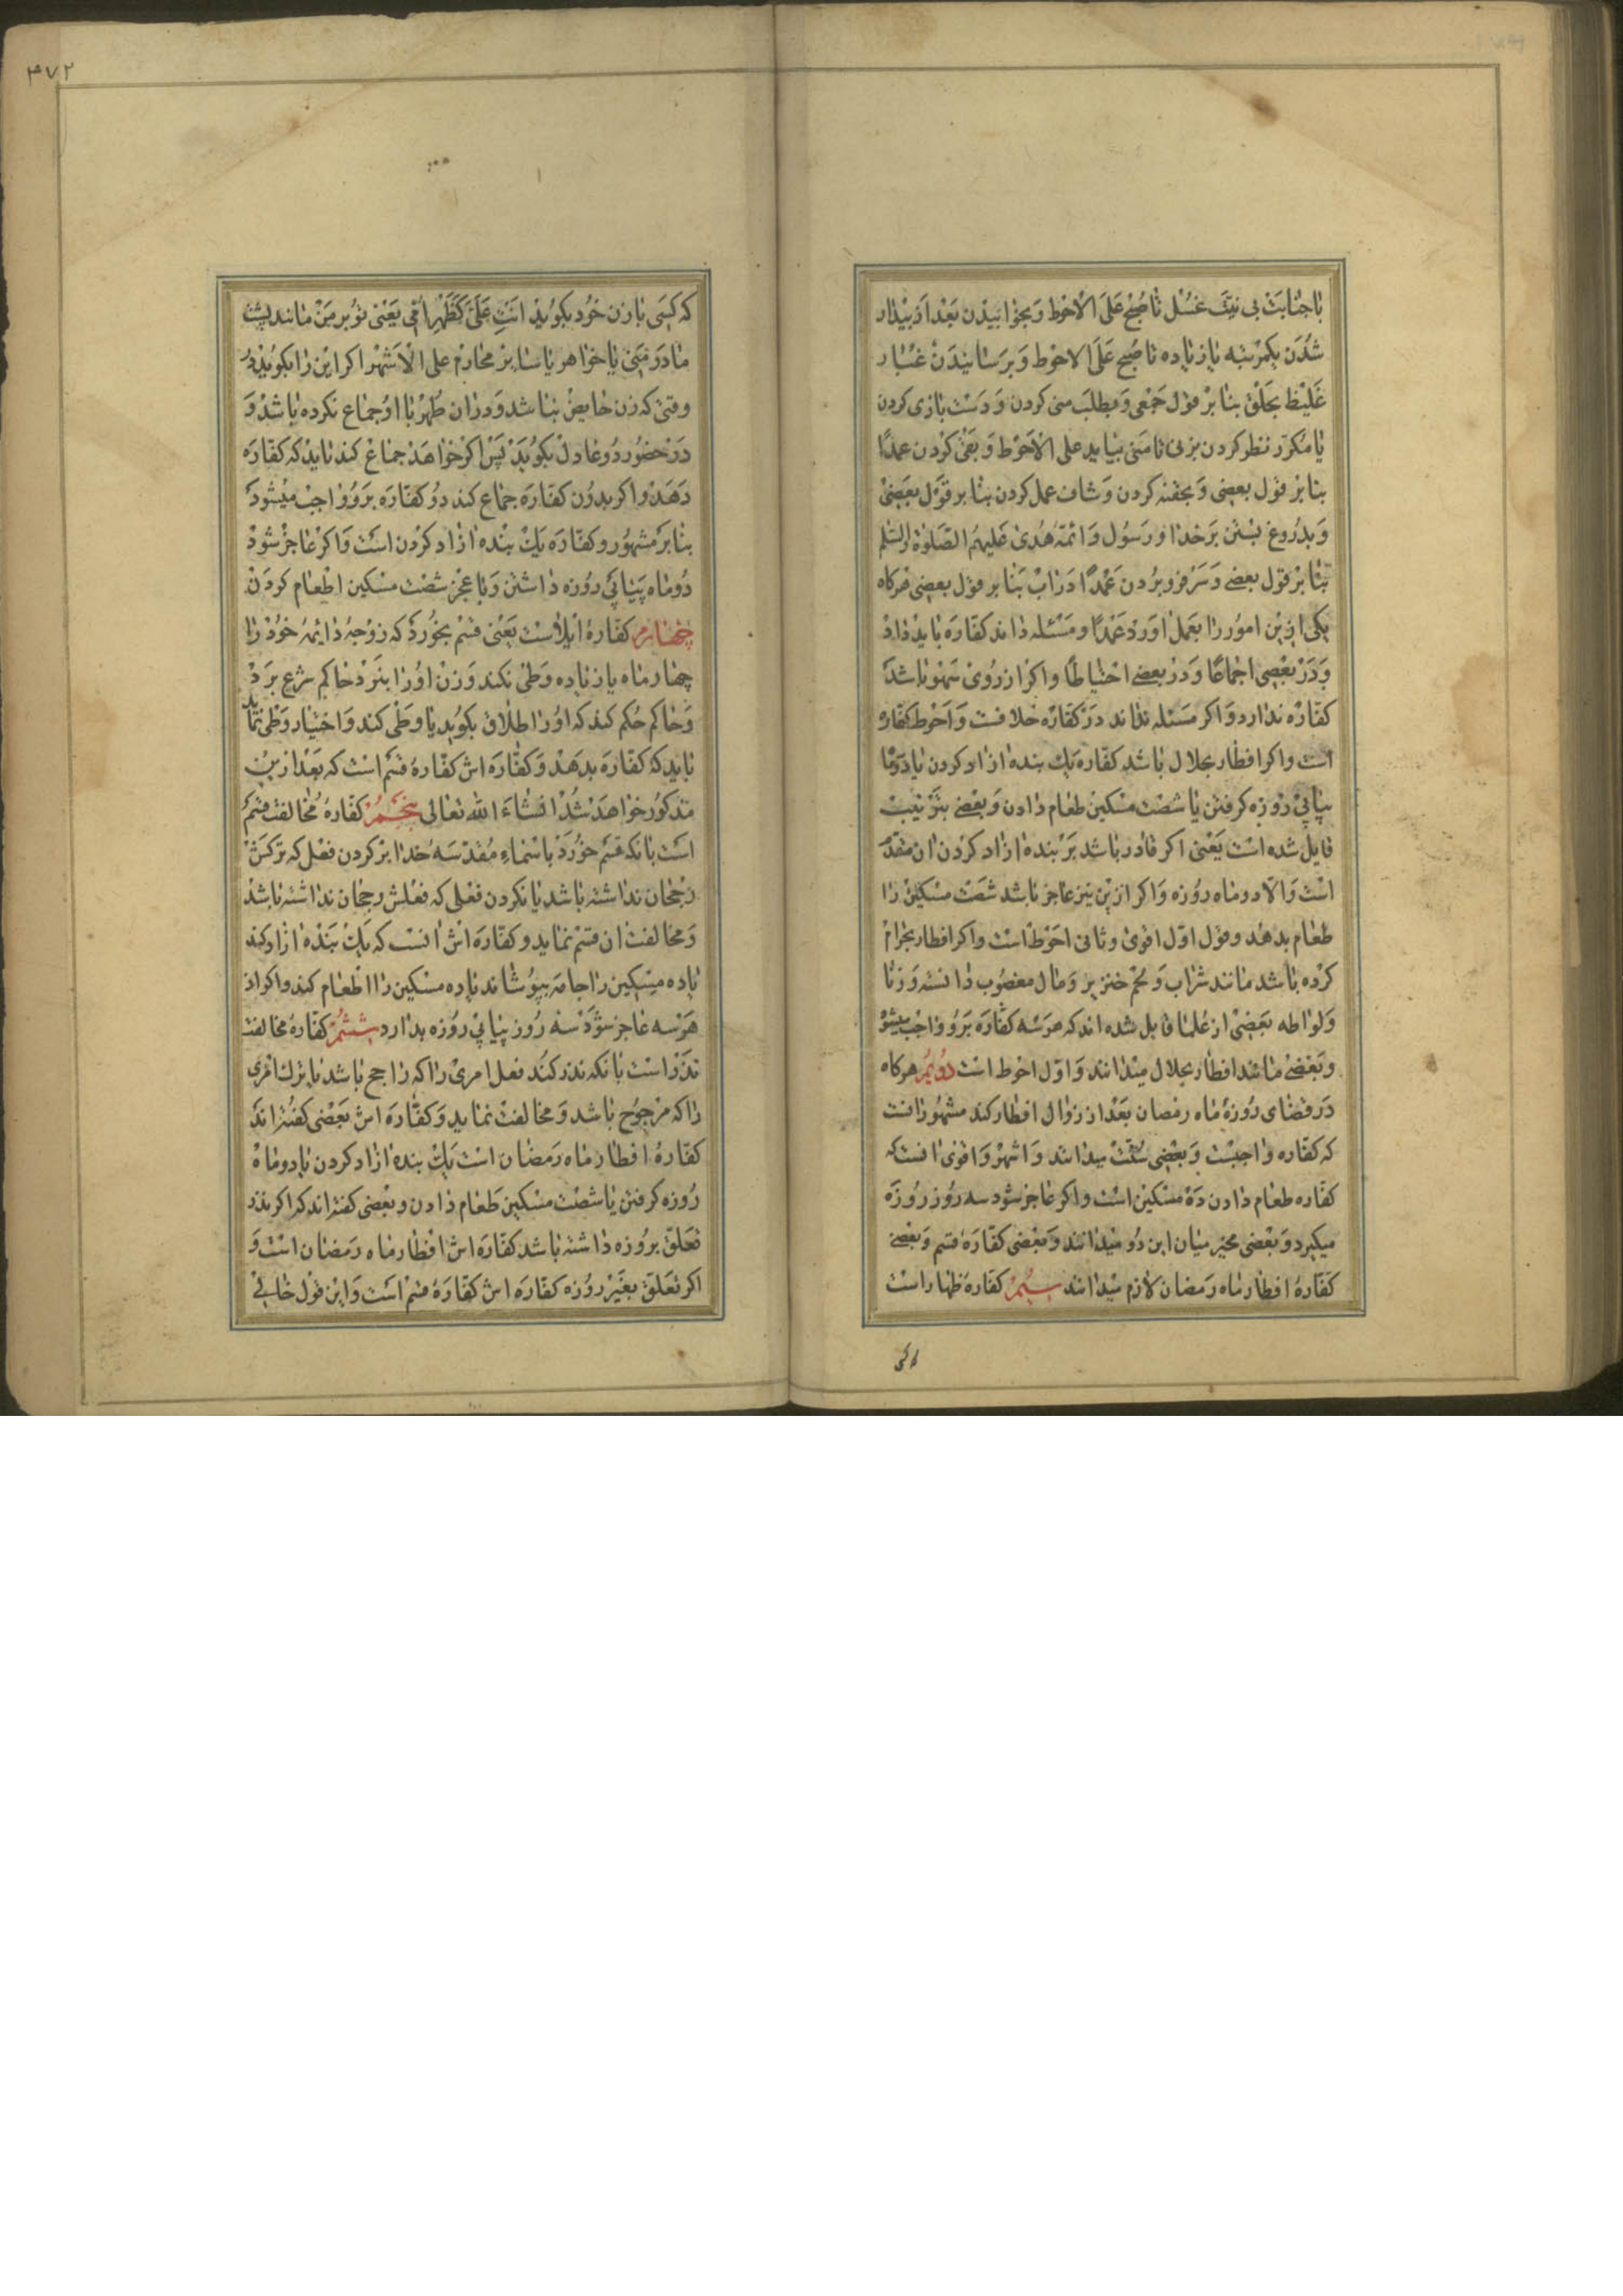 با جنابت بی نیت غسل تا صبح علی الاحوط و بخوابیدن بعد از بیدار
شدن یکمرتبه یا زیاده تا صبح علی الاحوط و برسانیدن غبار
غلیظ بحلق بنا بر قول جمعی و بطلب منی کردن و دست بازی کردن
یا مکرّر نظر کردن بزنی تا منی بیاید علی الاحوط و بقی کردن عمدًا
بنا بر قول بعضی و بحقنه کردن و شاف عمل کردن بنا بر قول بعضی
و بدروغ بستن بر خدا و رسول و ائمّه هدی علیهم الصّلوة والسّلم
بنا بر قول بعضی و سر فرو بردن عمدًا در اب بنا بر قول بعضی هرکاه
یکی ازین امور را بعمل اورد عمدًا و مسئله داند کفاره باید داد
و در بعضی اجماعًا و در بعضی احتیاطًا و اکر از روی سهو باشد
کفّاره ندارد و اکر مسئله نداند در کفاره خلافست و احوط کفاره
است و اکر افطار بحلال باشد کفاره یک بنده ازاد کردن یا دو ماه
پیاپی روزه کرفتن یا شصت مسکین طعام دادن و بعضی بترتیب
قایل شده است یعنی اکر قادر باشد بر بنده ازاد کردن ان مقدّم
است و الّا دو ماه روزه و اکر ازین نیز عاجز باشد شصت مسکین را
طعام بدهد و قول اوّل اقوی و ثانی احوط است و اکر افطار بحرام
کرده باشد مانند شراب و لحم خنزیر و مال مغصوب دانسته و زنا
و لواطه بعضی از علما قایل شده اند که هر سه کفاره برو واجب میشود
و بعضی مانند افطار بحلال میدانند و اوّل احوط است دویم هرکاه
در قضای روزهٔ ماه رمضان بعد از زوال افطار کند مشهور انست
که کفاره واجبست و بعضی سنّت میدانند و اشهر و اقوی انست که
کفاره طعام دادن ده مسکین است و اکر عاجز شود سه روز روزه
میکیرد و بعضی مخیر میان این دو میدانند و بعضی کفّارهٔ قسم و بعضی
کفّارهٔ افطار ماه رمضان لازم میدانند سیم کفاره ظهار است
۳۷۲
که کسی با زن خود بکوید انت علیّ کظهر امّی یعنی تو بر من مانند پشت
مادر منی یا خواهر یا سایر محارم علی الاشهر اکر این را بکوید در
وقتی که زن حایض نباشد و در ان طهر با او جماع نکرده باشد و
در حضور دو عادل بکوید پس اکر خواهد جماع کند باید که کفّاره
دهد و اکر بدون کفّاره جماع کند دو کفّاره برو واجب میشود
بنا بر مشهور و کفّاره یک بنده ازاد کردن است و اکر عاجز شود
دو ماه پیاپی روزه داشتن و با عجز شصت مسکین اطعام کردن
چهارم کفّارهٔ ایلاست یعنی قسم بخورد که زوجهٔ دایمهٔ خود را
چهار ماه یا زیاده وطی نکند و زن او را بنزد حاکم شرع برد
و حاکم حکم کند که او را طلاق بکوید یا وطی کند و اختیار وطی نماید
باید که کفّاره بدهد و کفّاره اش کفّارهٔ قسم است که بعد ازین
مذکور خواهد شد انشاء الله تعالی پنجم کفّارهٔ مخالفت قسم
است بانکه قسم خورد باسماء مقدّسه خدا بر کردن فعل که ترکش
رجحان نداشته باشد یا نکردن فعلی که فعلش رجحان نداشته باشد
و مخالفت ان قسم نماید و کفّاره اش انست که یک بنده ازاد کند
یا ده مسکین را جامه بپوشاند یا ده مسکین را اطعام کند و اکر از
هر سه عاجز شود سه روز پیاپی روزه بدارد ششم کفّارهٔ مخالفت
نذر است بانکه نذر کند فعل امری را که راجح باشد یا ترک امری
را که مرجوح باشد و مخالفت نماید و کفّاره اش بعضی کفته اند
کفّارهٔ افطار ماه رمضان است یک بنده ازاد کردن یا دو ماه
روزه کرفتن یا شصت مسکین طعام دادن و بعضی کفته اند که اکر نذر
تعلّق بروزه داشته باشد کفّاره اش افطار ماه رمضان است و
اکر تعلّق بغیر روزه کفّاره اش کفّارهٔ قسم است و این قول خالی